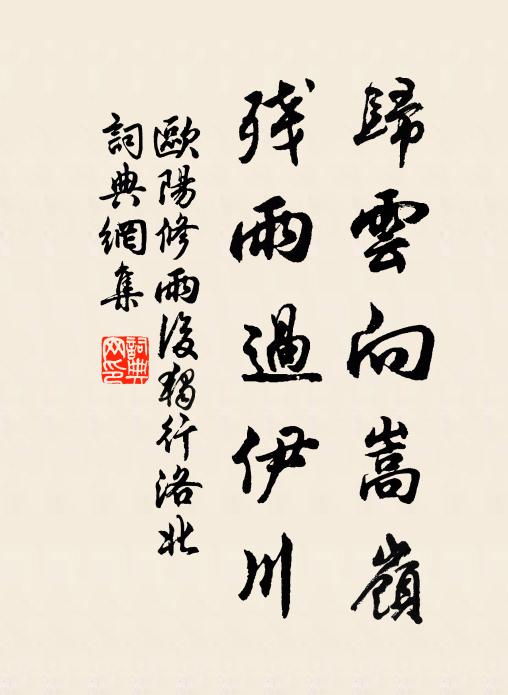 歸雲向嵩嶺
残雨過伊川
歐陽修雨後獨行洛北
詞典網集
詞典
网印